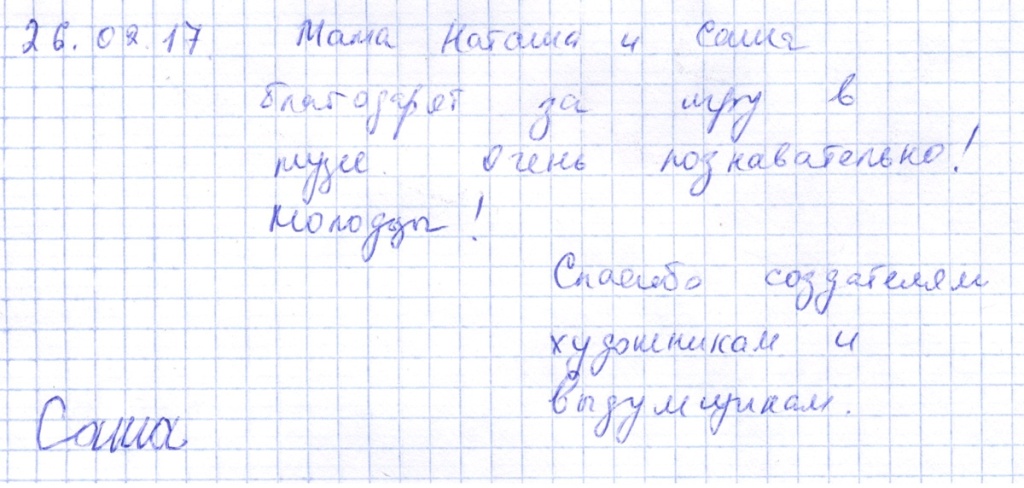 26.02.17 Мама Наташа и Саша
благодарят за игру в
музее. Очень познавательно!
Молодцы!
Спасибо создателям
художникам и
выдумщикам.
Саша